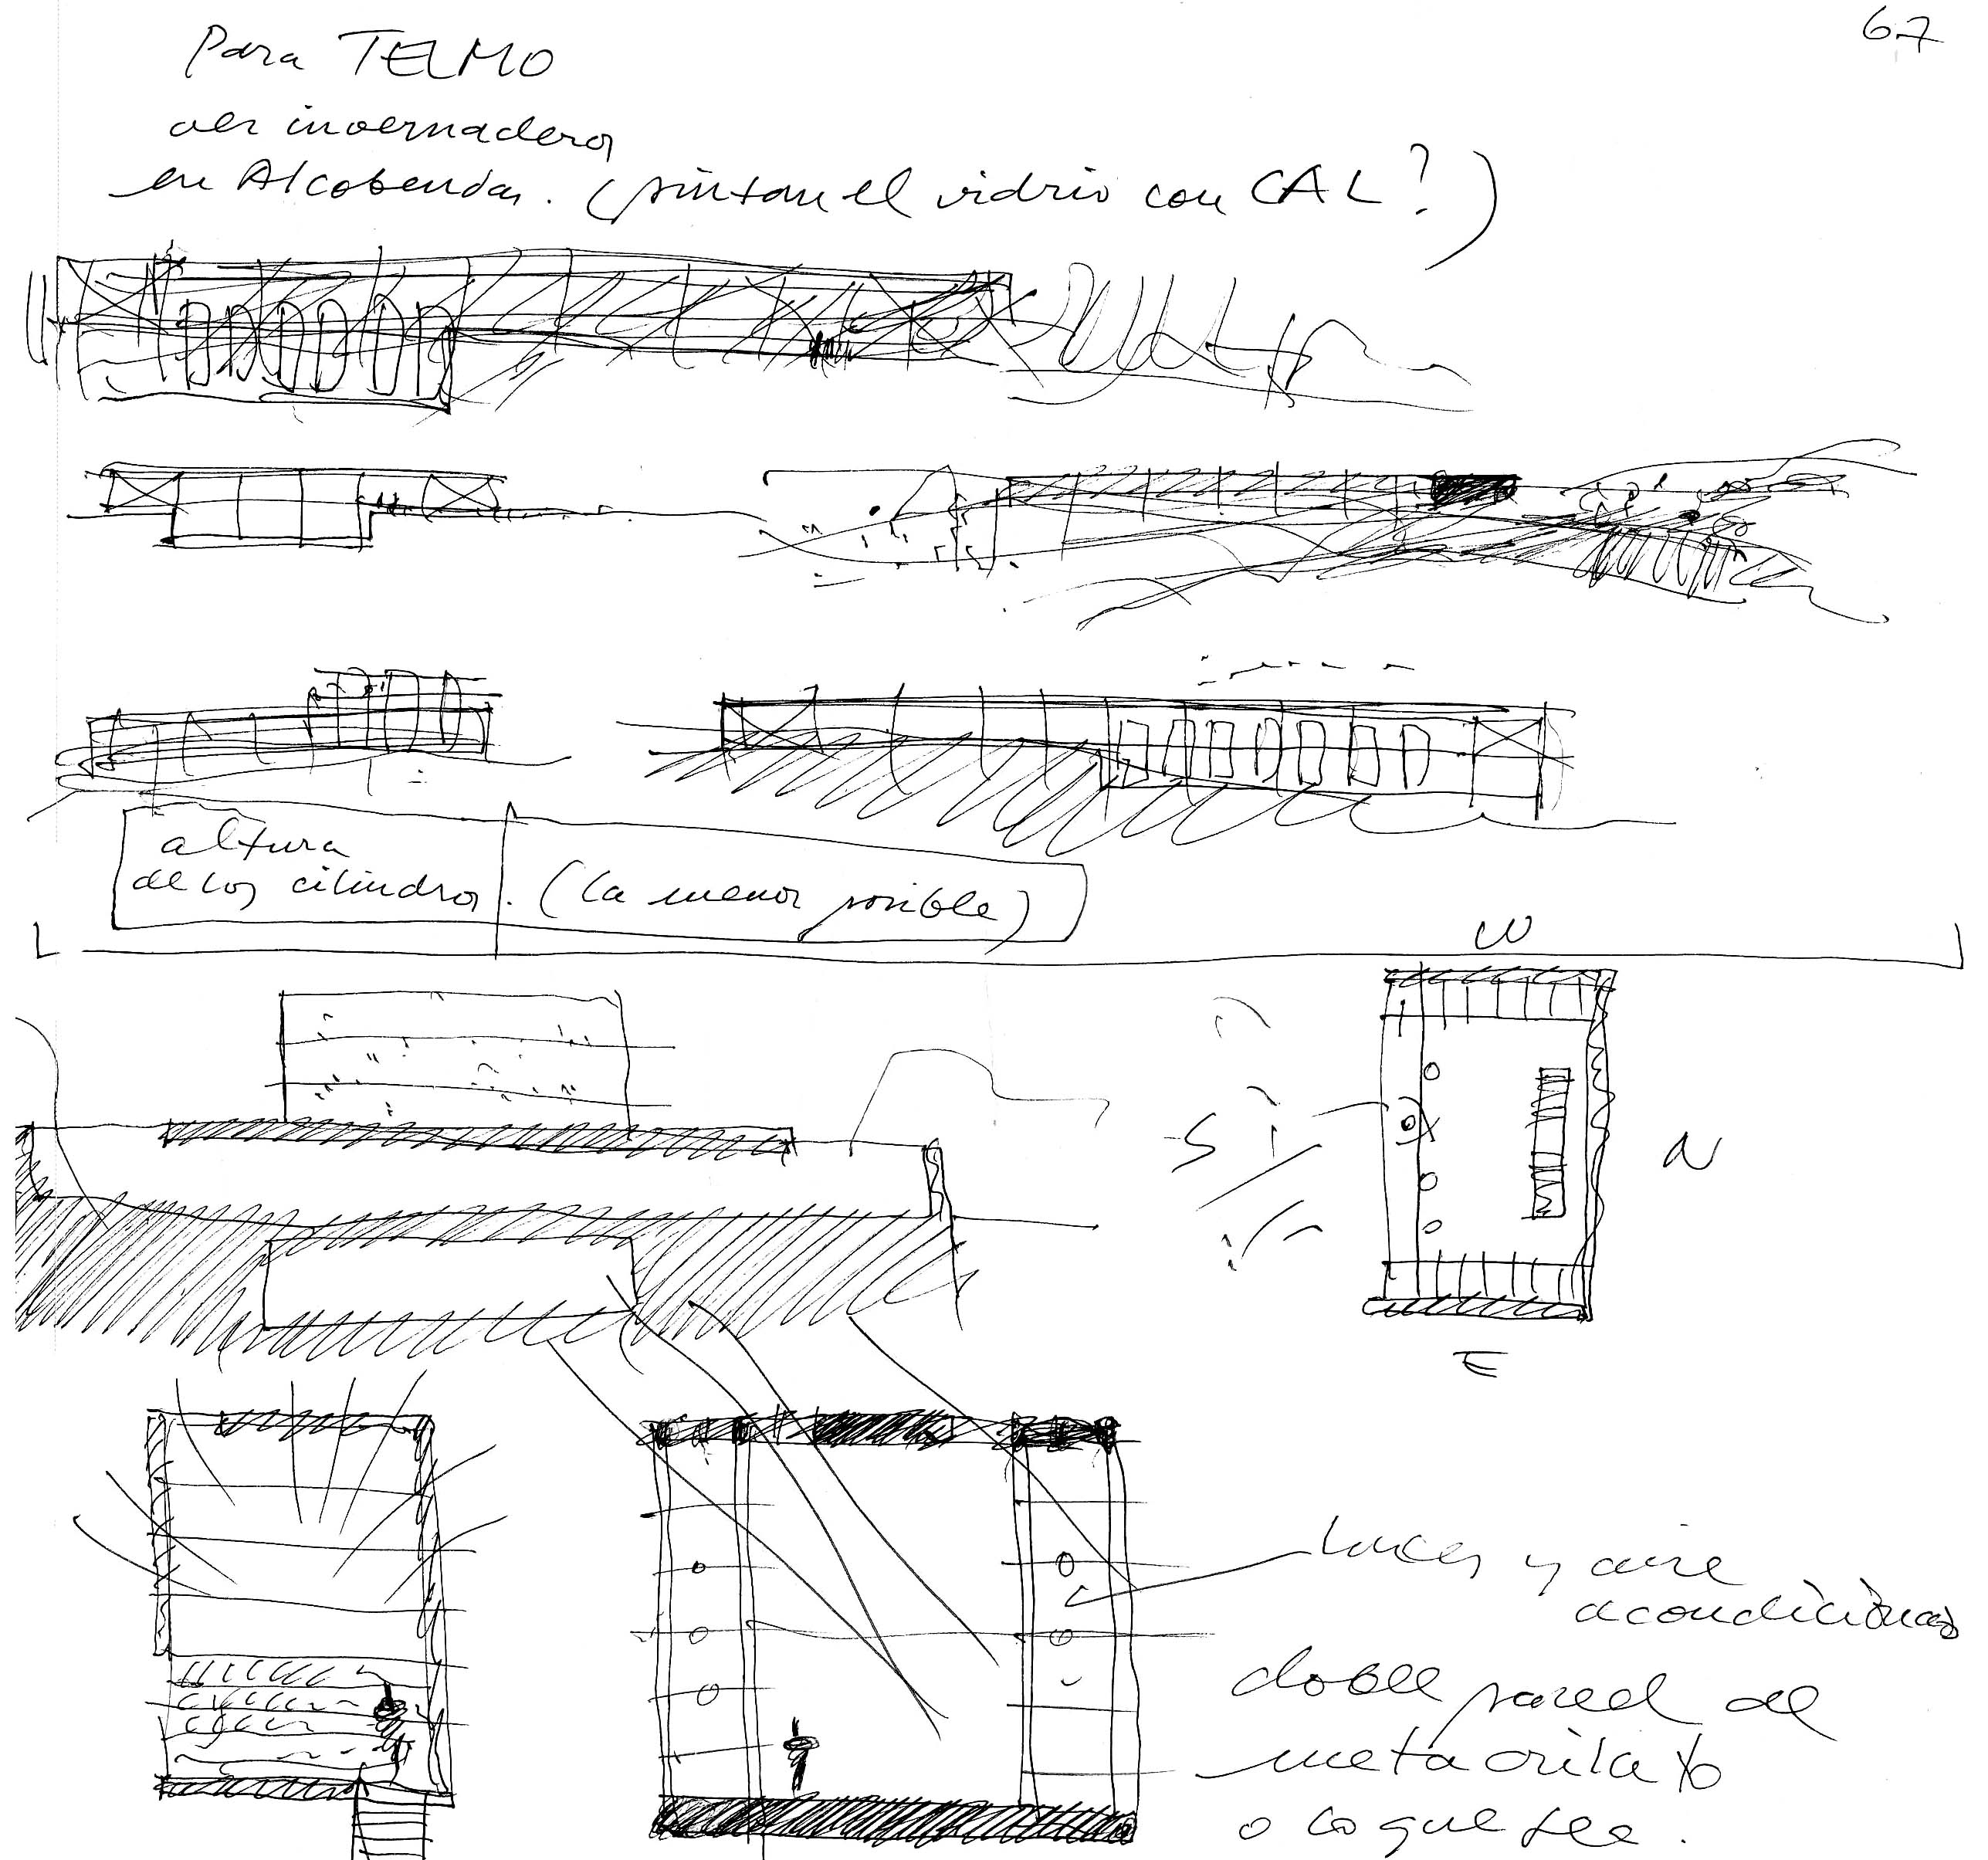 67
Para TELMO
ver invernaderos
en Alcobendas. (pintan el vidrio con CAL?)
altura
de los cilindros. (la menor posible)
W
S
N
E
luces y aire
acondicionado
doble pared de
metacrilato
o lo que sea.